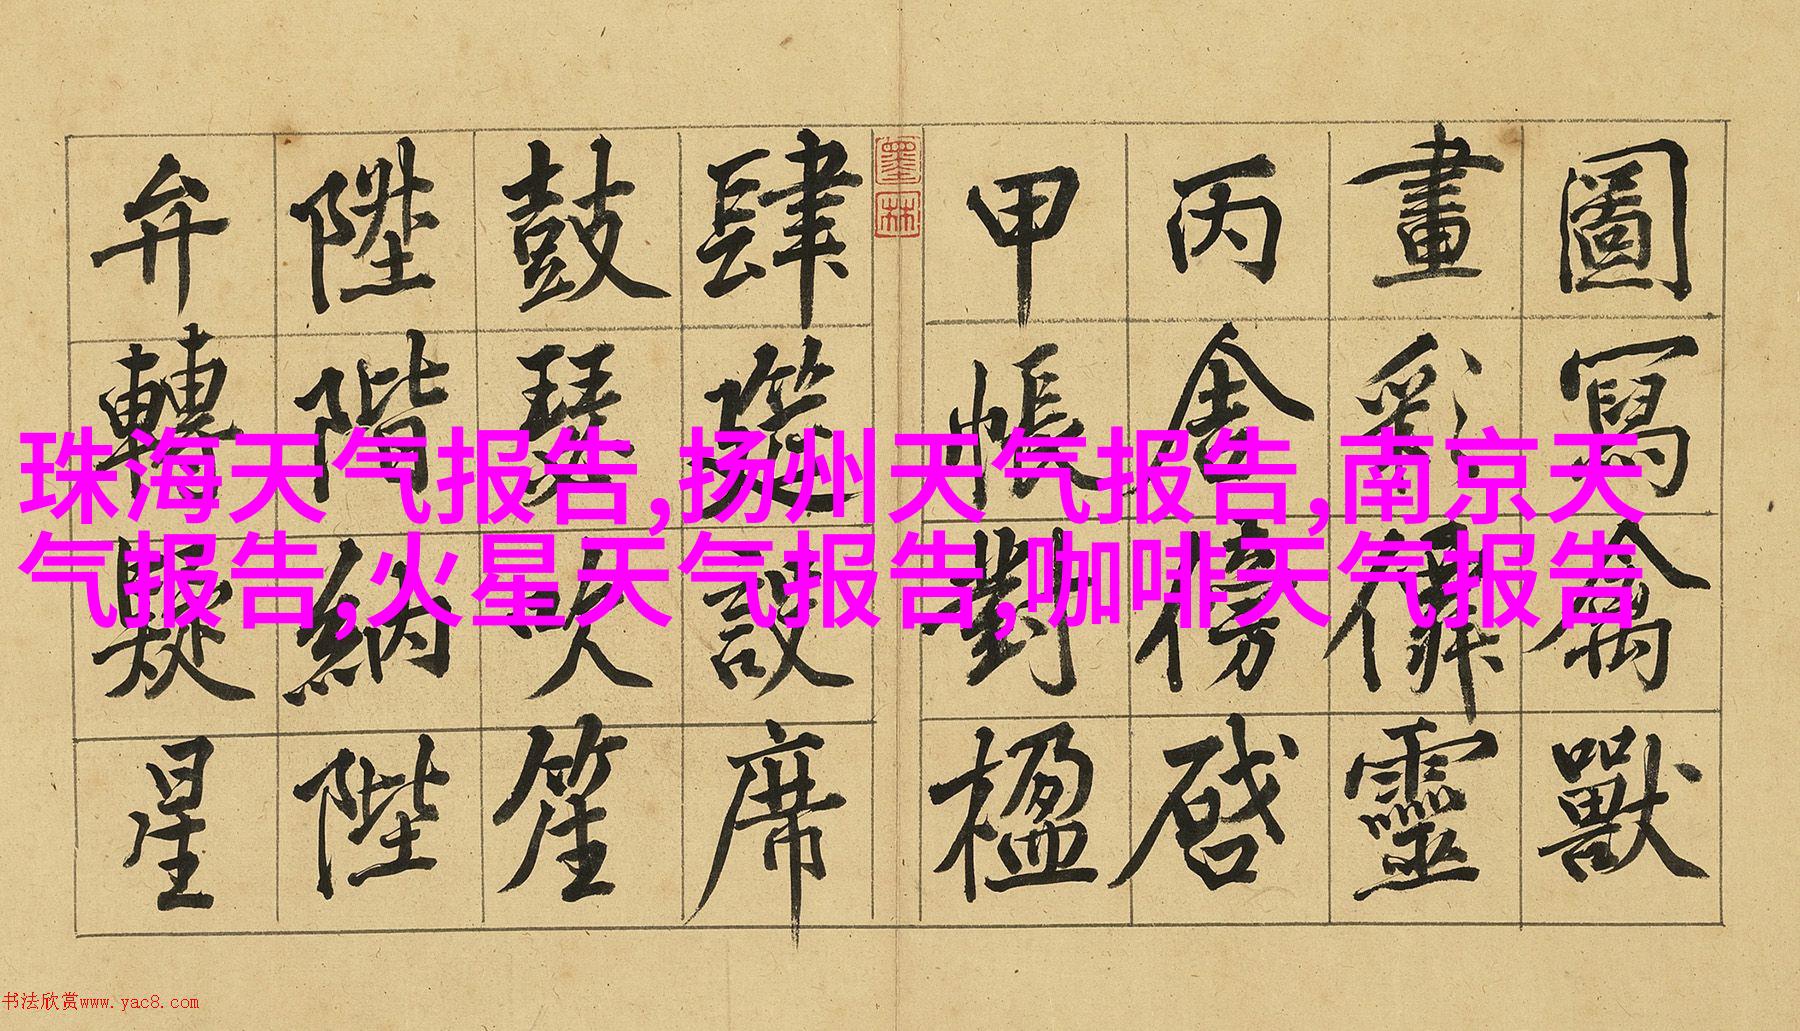 圖寫禽獸
畫彩僊靈
丙舍傍啓
甲帳對楹
肆筵設席
鼓瑟吹笙
陞階納陛
弁轉疑星
墨林
珠海天气报告,扬州天气报告,南京天
气报告,火星天气报告,咖啡天气报告
书法欣赏www.yac8.com